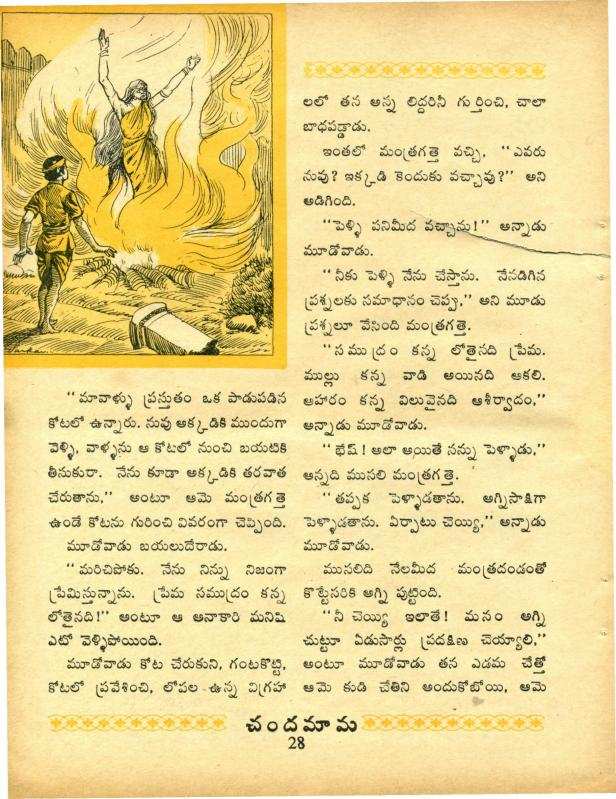 “మావాళ్ళు ప్రస్తుతం ఒక పాడుపడిన
కోటలో ఉన్నారు. నువు అక్కడికి ముందుగా
వెళ్ళి, వాళ్ళను ఆ కోటలో నుంచి బయటికి
తీసుకురా. నేను కూడా అక్కడికి తరవాత
చేరుతాను,” అంటూ ఆమె మంత్రగత్తె
ఉండే కోటను గురించి వివరంగా చెప్పింది.
మూడోవాడు బయలుదేరాడు.
“మరిచిపోకు. నేను నిన్ను నిజంగా
ప్రేమిస్తున్నాను. ప్రేమ సముద్రం కన్న
లోతైనది!” అంటూ ఆ అనాకారి మనిషి
ఎటో వెళ్ళిపోయింది.
మూడోవాడు కోట చేరుకుని, గంటకొట్టి,
కోటలో ప్రవేశించి, లోపల ఉన్న విగ్రహా
లలో తన అన్న లిద్దరినీ గుర్తించి, చాలా
బాధపడ్డాడు.
ఇంతలో మంత్రగత్తె వచ్చి, “ఎవరు
నువు? ఇక్కడి కెందుకు వచ్చావు?” అని
అడిగింది.
“పెళ్ళి పనిమీద వచ్చాను!” అన్నాడు
మూడోవాడు.
“నీకు పెళ్ళి నేను చేస్తాను. నేనడిగిన
ప్రశ్నలకు సమాధానం చెప్పు,” అని మూడు
ప్రశ్నలూ వేసింది మంత్రగత్తె.
“సముద్రం కన్న లోతైనది ప్రేమ.
ముల్లు కన్న వాడి అయినది ఆకలి.
ఆహారం కన్న విలువైనది ఆశీర్వాదం,”
అన్నాడు మూడోవాడు.
“భేష్! అలా అయితే నన్ను పెళ్ళాడు,”
అన్నది ముసలి మంత్రగత్తె.
“తప్పక పెళ్ళాడతాను. అగ్నిసాక్షిగా
పెళ్ళాడతాను. ఏర్పాటు చెయ్యి,” అన్నాడు
మూడోవాడు.
ముసలిది నేలమీద మంత్రదండంతో
కొట్టేసరికి అగ్ని పుట్టింది.
“నీ చెయ్యి ఇలాతే! మనం అగ్ని
చుట్టూ ఏడుసార్లు ప్రదక్షిణ చెయ్యాలి,”
అంటూ మూడోవాడు తన ఎడమ చేత్తో
ఆమె కుడి చేతిని అందుకోబోయి, ఆమె
చందమామ
28